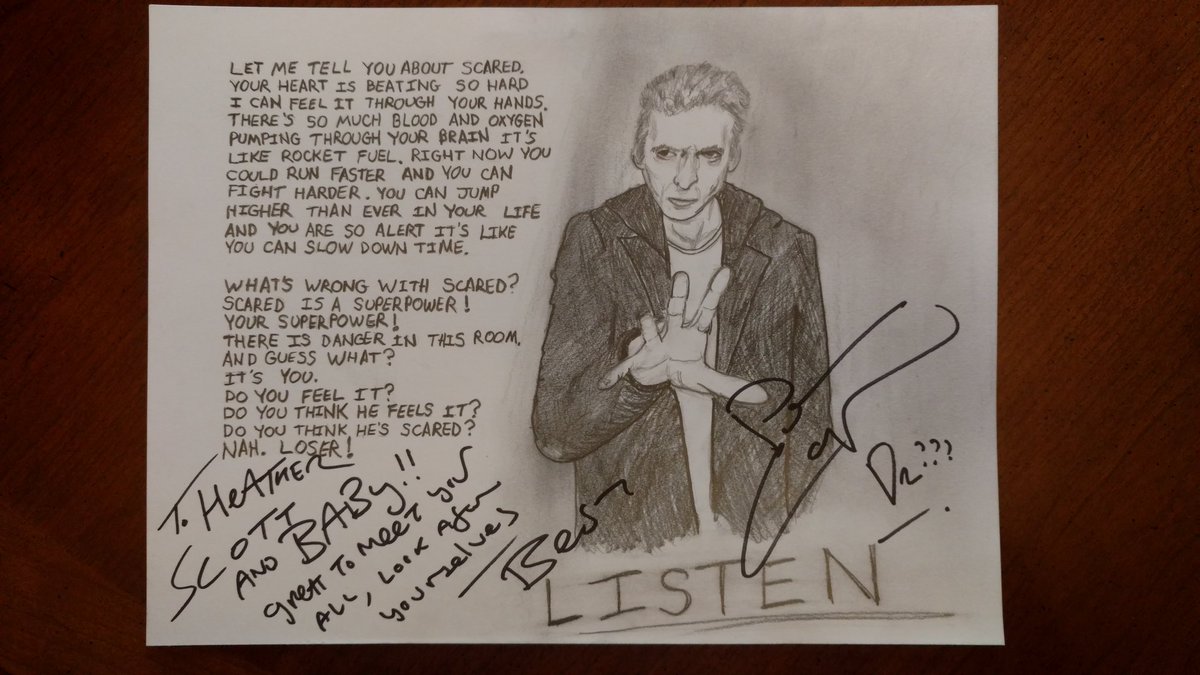 LET ME TELL YOU ABOUT SCARED.
YOUR HEART IS BEATING SO HARD
I CAN FEEL IT THROUGH YOUR HANDS.
THERE'S SO MUCH BLOOD AND OXYGEN
PUMPING THROUGH YOUR BRAIN IT'S
LIKE ROCKET FUEL. RIGHT NOW YOU
COULD RUN FASTER AND YOU CAN
FIGHT HARDER. YOU CAN JUMP
HIGHER THAN EVER IN YOUR LIFE
AND YOU ARE SO ALERT IT'S LIKE
YOU CAN SLOW DOWN TIME.
WHAT'S WRONG WITH SCARED?
SCARED IS A SUPERPOWER!
YOUR SUPERPOWER!
THERE IS DANGER IN THIS ROOM.
AND GUESS WHAT?
IT'S YOU.
DO YOU FEEL IT?
DO YOU THINK HE FEELS IT?
DO YOU THINK HE'S SCARED?
NAH. LOSER!
To HEATHER
SCOTT
AND BABY!!
great to meet you
ALL, LOOK After
yourselves
Best
Dr???
LISTEN